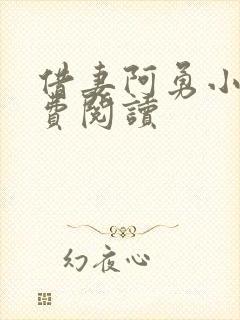 借妻阿勇小
費閱讀
幻夜心